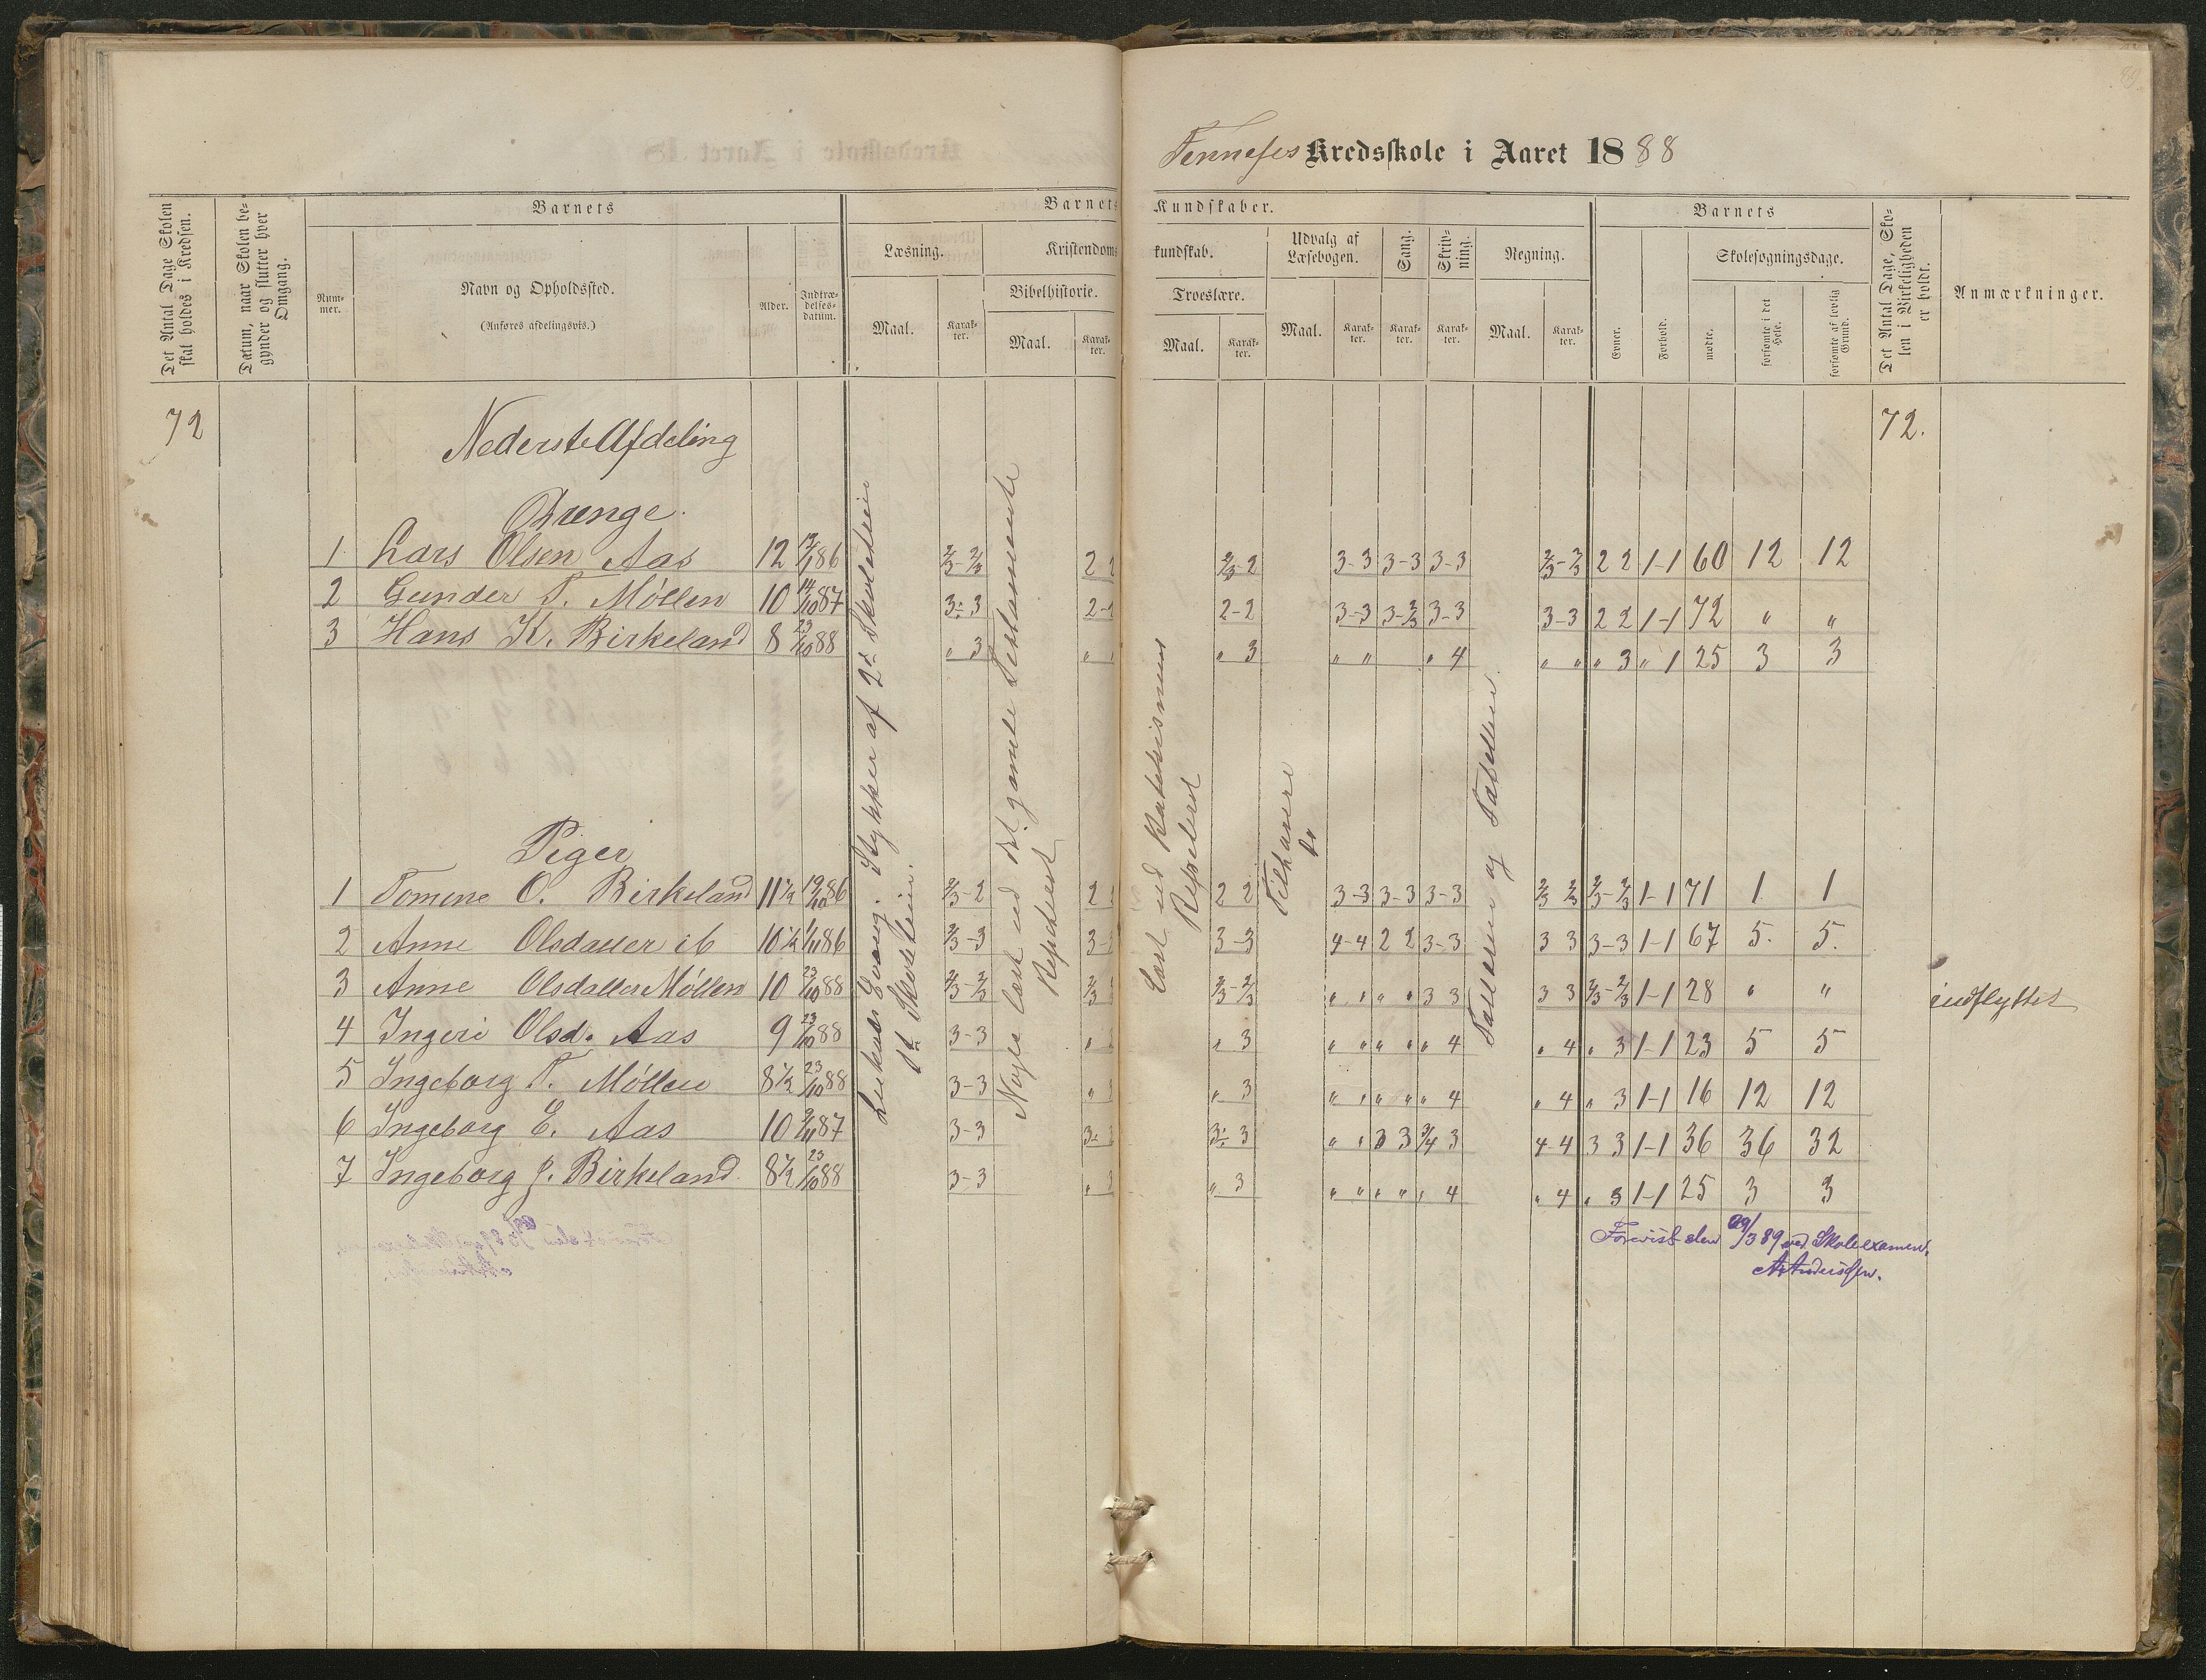 89
Tennesses Kredsskole i Aaret 1888
Det Antal Dage Skolen skal holdes i Kredsen.
Datum, naar Skolen begynder og slutter hver Omgang.
Barnets
Num-
mer.
Navn og Opholdssted.
(Anføres afdelingsvis.)
Alder.
Indtræ-
delses-
datum.
Barnets Kundskaber.
Læsning.
Maal.
Karak-
ter.
Kristendomskundskab.
Bibelhistorie.
Maal.
Karak-
ter.
Troeslære.
Maal.
Karak-
ter.
Udvalg af
Læsebogen.
Maal.
Karak-
ter.
Sang.
Karak-
ter.
Skriv-
ning.
Karak-
ter.
Regning.
Maal.
Karak-
ter.
Barnets
Evner.
Forhold.
Skolesøgningsdage.
mødte.
forsømte i det Hele.
forsømte af lovlig Grund.
Det Antal Dage, Skolen i Virkeligheden er holdt.
Anmærkninger.
72 72.
Nederste Afdeling
Drenge.
1 Lars Olsen Aas 12 12/1 86 2/3-2/3 2 2/3-2 3-3 3-3 3-3 2/3-2/3 2 2 1-1 60 12 12
2 Gunder T. Møllen 10 14/10 87 3-3 2- 2-2 3-3 3-2/3 3-3 3-3 2 2 1-1 72 " "
3 Hans K. Birkeland 8 23/10 88 " 3 " " 3 " " " 4 " " " 3 " 1 25 3 3
Piger
1 Tomine O. Birkeland 11 1/2 19/10 86 2/3-2 2 2 2 3-3 3-3 3-3 2/3 2/3 2/3-2/3 1-1 71 1 1
2 Anne Olsdatter ib 10 1/2 1/11 86 2/3-3 3- 3-3 4-4 2 2 3-3 3 3 3-3 1-1 67 5. 5.
3 Anne Olsdatter Møllen 10 23/10 88 2/3-2/3 2/3 2/3-2/3 " " " " 3 3 3 3 2/3-2/3 1-1 28 " " indflyttet
4 Ingeri Olsd. Aas 9 23/10 88 3-3 " " 3 " " " " " 4 " 4 " 3 1-1 23 5 5
5 Ingeborg T. Møllen 8 1/2 23/10 88 3-3 " " 3 " " " " " 4 " 4 " 3 1-1 16 12 12
6 Ingeborg E. Aas 10 9/11 87 3-3 3- 3- 3 " " 3 3 3/4 3 4-4 3 3 1-1 36 36 32
7 Ingeborg J. Birkeland 8 1/2 23/10 88 3-3 " " 3 " " " " " 4 " 4 " 3 1-1 25 3 3
Stykker af 2d Skoletrin
1ste Skoletrin.
Nogle læst ud det gamle Testamente
Repeteret
Læst ud Katekismus
Repeteret
Tilhørere
do
Tallæren og Tabellen
Forevist den 29/3 89 ved Skoleexamen.
A Anderssen.